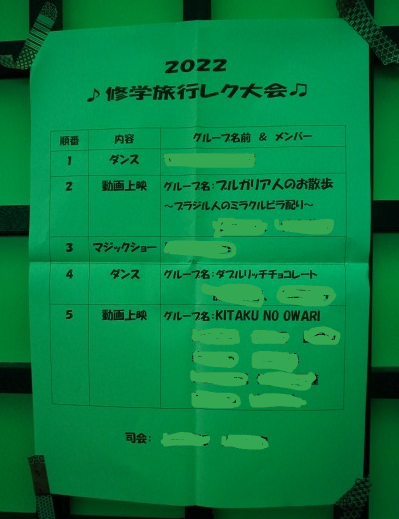 2022
♪修学旅行レク大会♫
順番 内容 グループ名前 & メンバー
1 ダンス
2 動画上映 グループ名:ブルガリア人のお散歩
～ブラジル人のミラクルビラ配り～
3 マジックショー
4 ダンス グループ名:ダブルリッチチョコレート
5 動画上映 グループ名:KITAKU NO OWARI
司会: